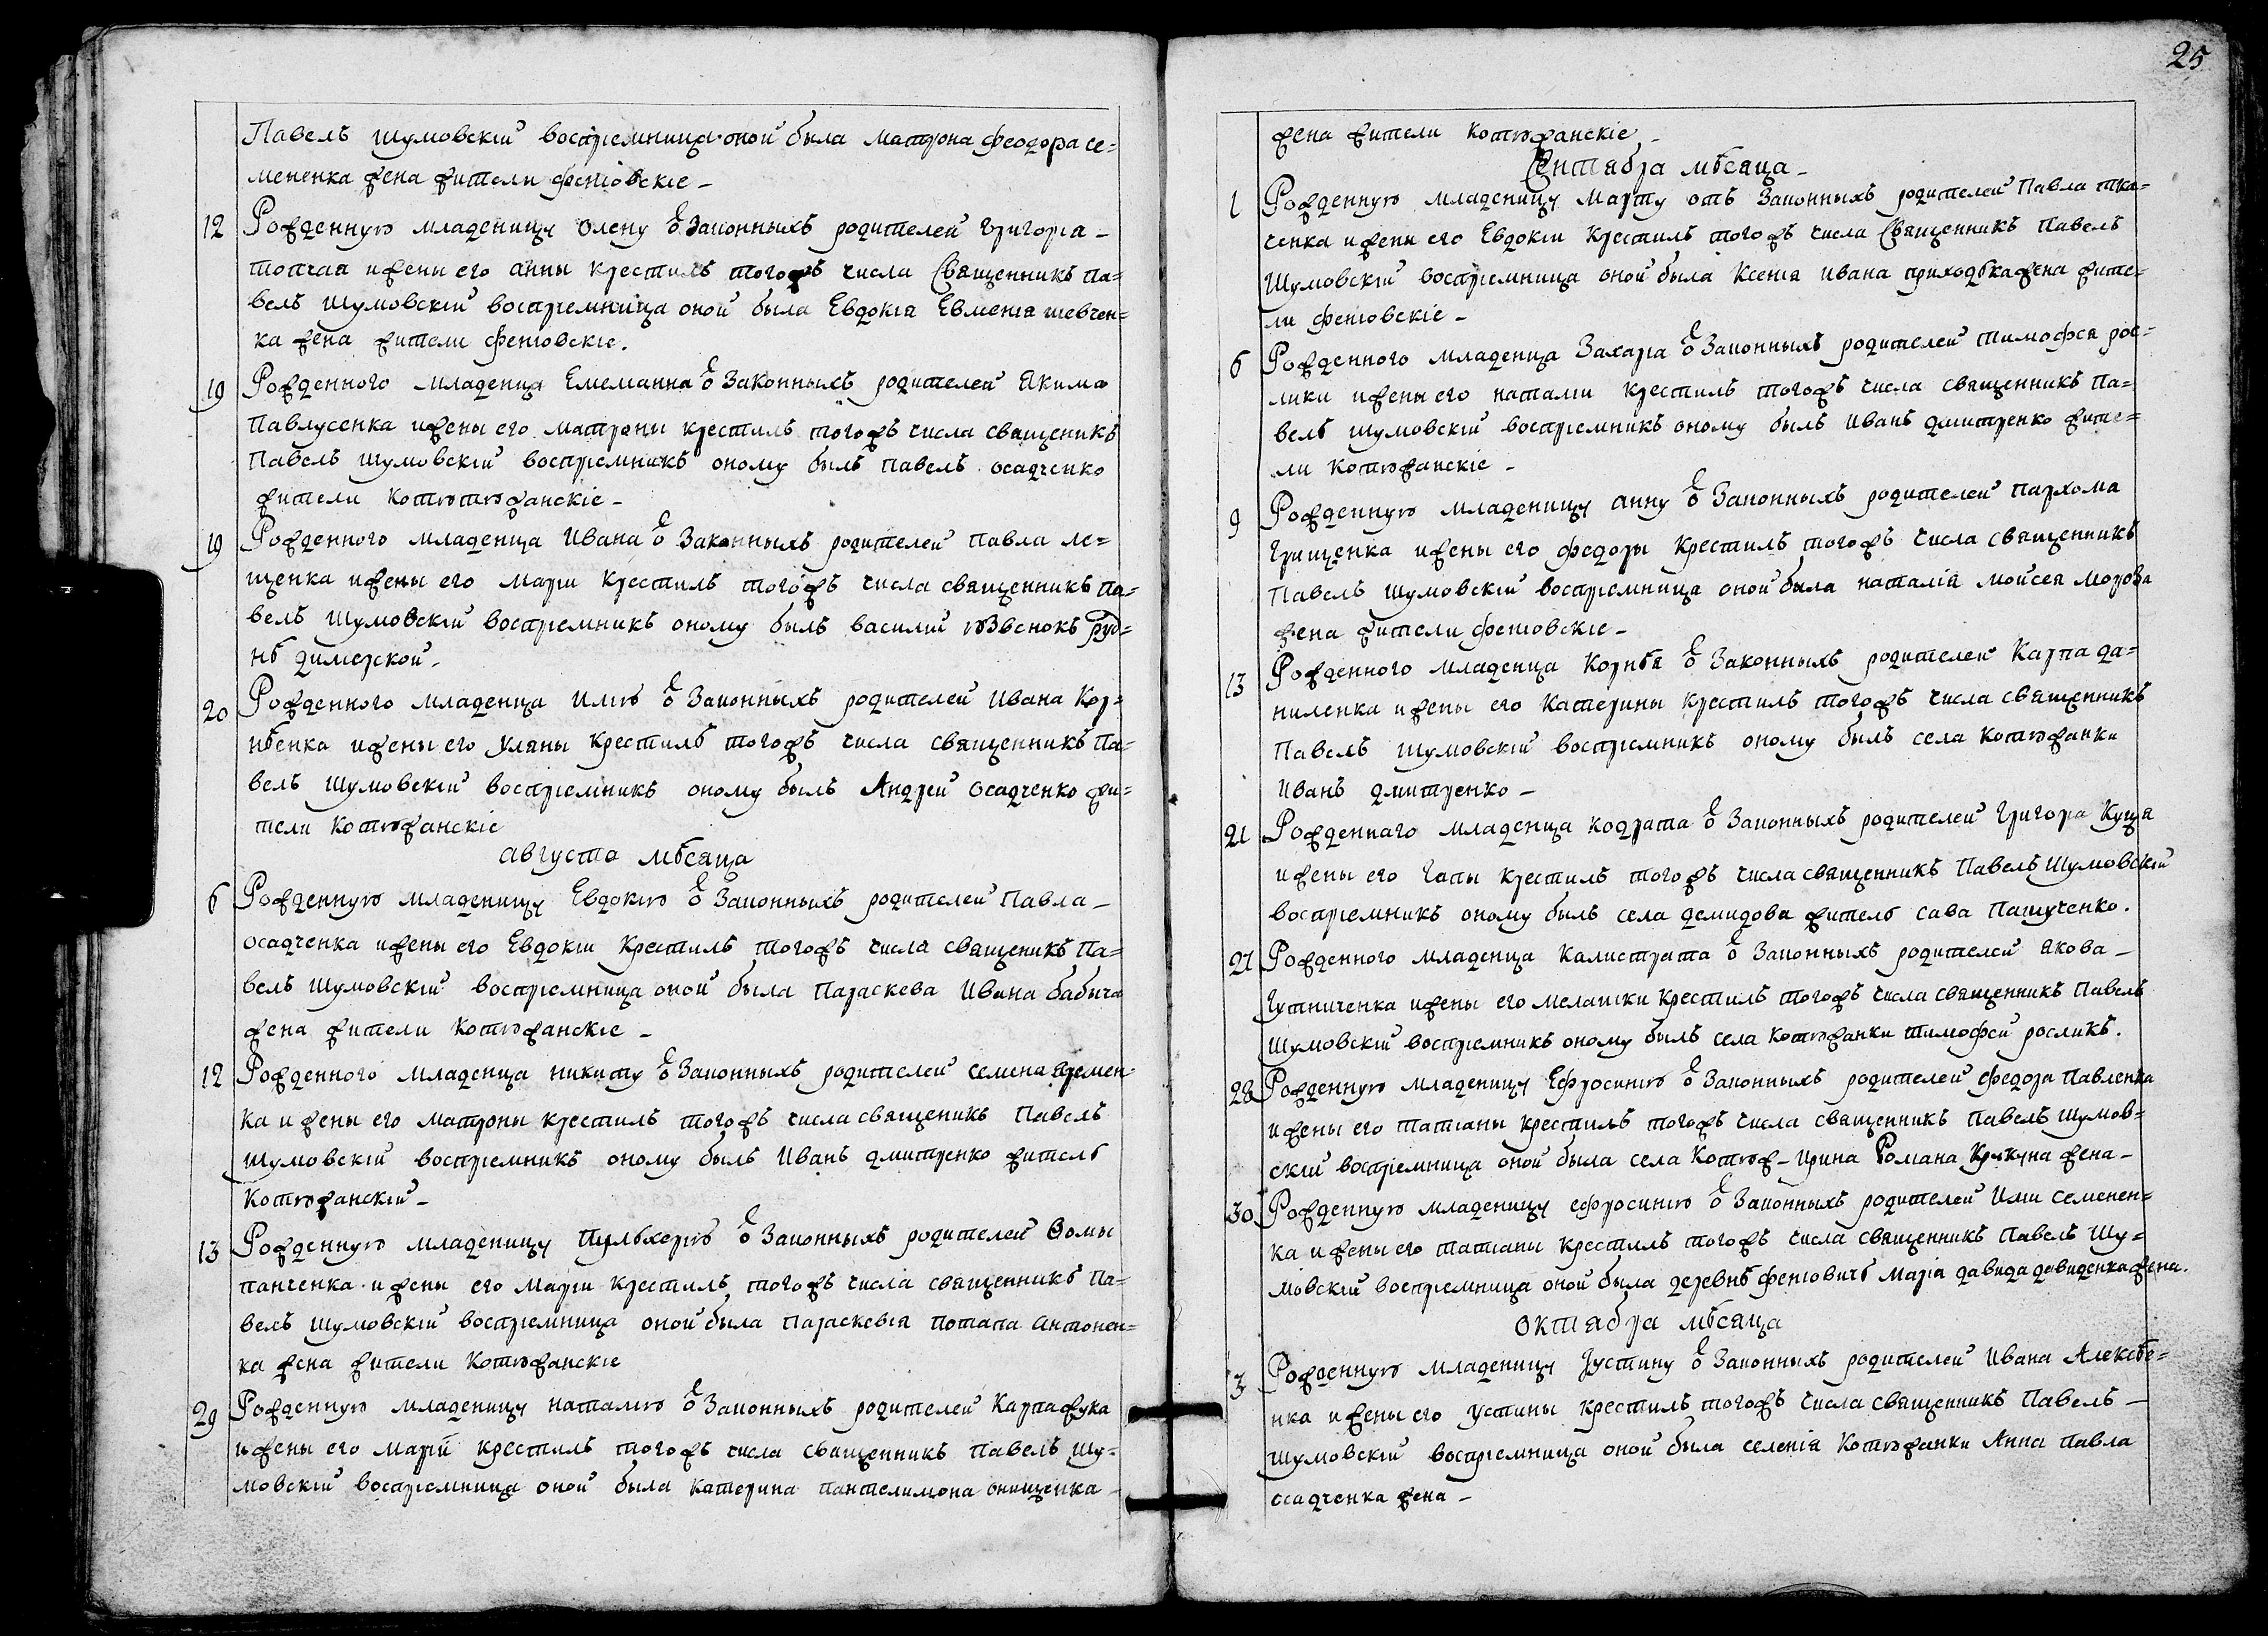 Павелъ Шумовскій воспріемница оной была матрона феодора се=
мененка жена жители феніовскіе –
12 Рожденную младеницу Олену ѿ законныхъ родителей Григоріа –
топчаа и жены его анны крестилъ тогожъ числа Священникъ Па=
велъ Шумовскій воспріемница оной была Евдокіа Евменіа шевчен=
ка жена жители феніовскіе.
19 Рожденного младенца Емелианна ѿ законныхъ родителей Якима
Павлусенка и жены его матроны крестилъ тогожъ числа священикъ
Павелъ шумовскій воспріемникъ оному былъ павелъ осадченко
жители котюжанскіе –
19 Рожденного младенца Ивана ѿ законныхъ родителей Павла ле=
щенка и жены его маріи крестилъ тогожъ числа священникъ Па=
велъ Шумовскій воспріемникъ оному былъ василій руд=
нѣ димерской –
20 Рожденного младенца Илию ѿ законныхъ родителей Ивана Кор=
нѣенка и жены его Уляны крестилъ тогожъ числа священникъ Па=
велъ Шумовскій воспріемникъ оному былъ Андрей Осадченко жи=
тели котюжанскіе
августа мѣсяца
6 Рожденную младеницу Евдокію ѿ законныхъ родителей Павла –
осадченка и жены его Евдокіи крестилъ тогожъ числа священикъ Па=
велъ Шумовскій воспріемница оной была Параскева Ивана бабича
жена жители котюжанскіе –
12 Рожденного младенца никиту ѿ законныхъ родителей семена яремен=
ка и жены его матроны крестилъ тогожъ числа священикъ Павелъ
Шумовскій воспріемникъ оному былъ Иванъ дмитренко житель
котюжанскій –
13 Рожденную младеницу Пульхерію ѿ законныхъ родителей Ѳомы
панченка и жены его маріи крестилъ тогожъ числа священникъ Па=
велъ шумовскій воспріемница оной была Параскевіа потапа антонен=
ка жена жители котюжанскіе
29 Рожденную младеницу наталію ѿ законныхъ родителей Карпа жука
и жены его маріи крестилъ тогожъ числа священникъ Павелъ Шу=
мовскій воспріемница оной была катерина пантелимона онищенка –
25
жена жители котюжанскіе –
Сентября мѣсяца –
1 Рожденную младеницу марту отъ законныхъ родителей Павла тка=
ченка и жены его Евдокіи крестилъ тогожъ числа Священникъ Павелъ
Шумовскій воспріемница оной была Ксеніа ивана приходькажена жите=
ли феніовскіе –
6 Рожденного младенца Захаріа ѿ законныхъ родителей тимофея рос=
лики и жены его наталіи крестилъ тогожъ числа священникъ Па=
велъ шумовскій воспріемникъ оному былъ Иванъ дмитренко жите=
ли котюжанскіе –
9 Рожденную младеницу анну ѿ законныхъ родителей пархома
Грищенка и жены его федоры крестилъ тогожъ числа священникъ
Павелъ шумовскій воспріемница оной была наталія мойсея мороза
жена жители феніовскіе –
13 Рожденного младенца Корнѣя ѿ законныхъ родителей Карпа да=
ниленка и жены его катерины крестилъ тогожъ числа священникъ
Павелъ шумовскій воспріемникъ оному былъ села котюжанки
Иванъ дмитренко –
21 Рожденнаго младенца кодрата ѿ законныхъ родителей Григора Куця
и жены его Гапы крестилъ тогожъ числа священникъ Павелъ Шумовскій
воспріемникъ оному былъ села демидова житель сава Пашученко.
27 Рожденного младенца Калистрата ѿ законныхъ родителей якова –
Гутниченка и жены его мелашки крестилъ тогожъ числа священникъ Павелъ
Шумовскій воспріемникъ оному былъ села котюжанки тимофей росликъ.
28 Рожденную младеницу Ефросинію ѿ законныхъ родителей федора Павленка
и жены его татіаны крестилъ тогожъ числа священникъ Павелъ шумов=
скій воспріемница оной была села Котюж– Ирина Романа Крикуна жена –
30 Рожденную младеницу ефросинію ѿ законныхъ родителей Иліи семенен=
ка и жены его татіаны крестилъ тогожъ числа священникъ Павелъ Шу=
мовскій воспріемница оной была деревнѣ феніовичъ маріа давида давиденка жена.
октября мѣсяца
3 Рожденную младеницу Іустину ѿ законныхъ родителей Ивана Алексѣе=
нка и жены его устины крестилъ тогожъ числа священникъ Павелъ –
Шумовскій воспріемница оной была селенія котюжанки Анна павла
осадченка жена –